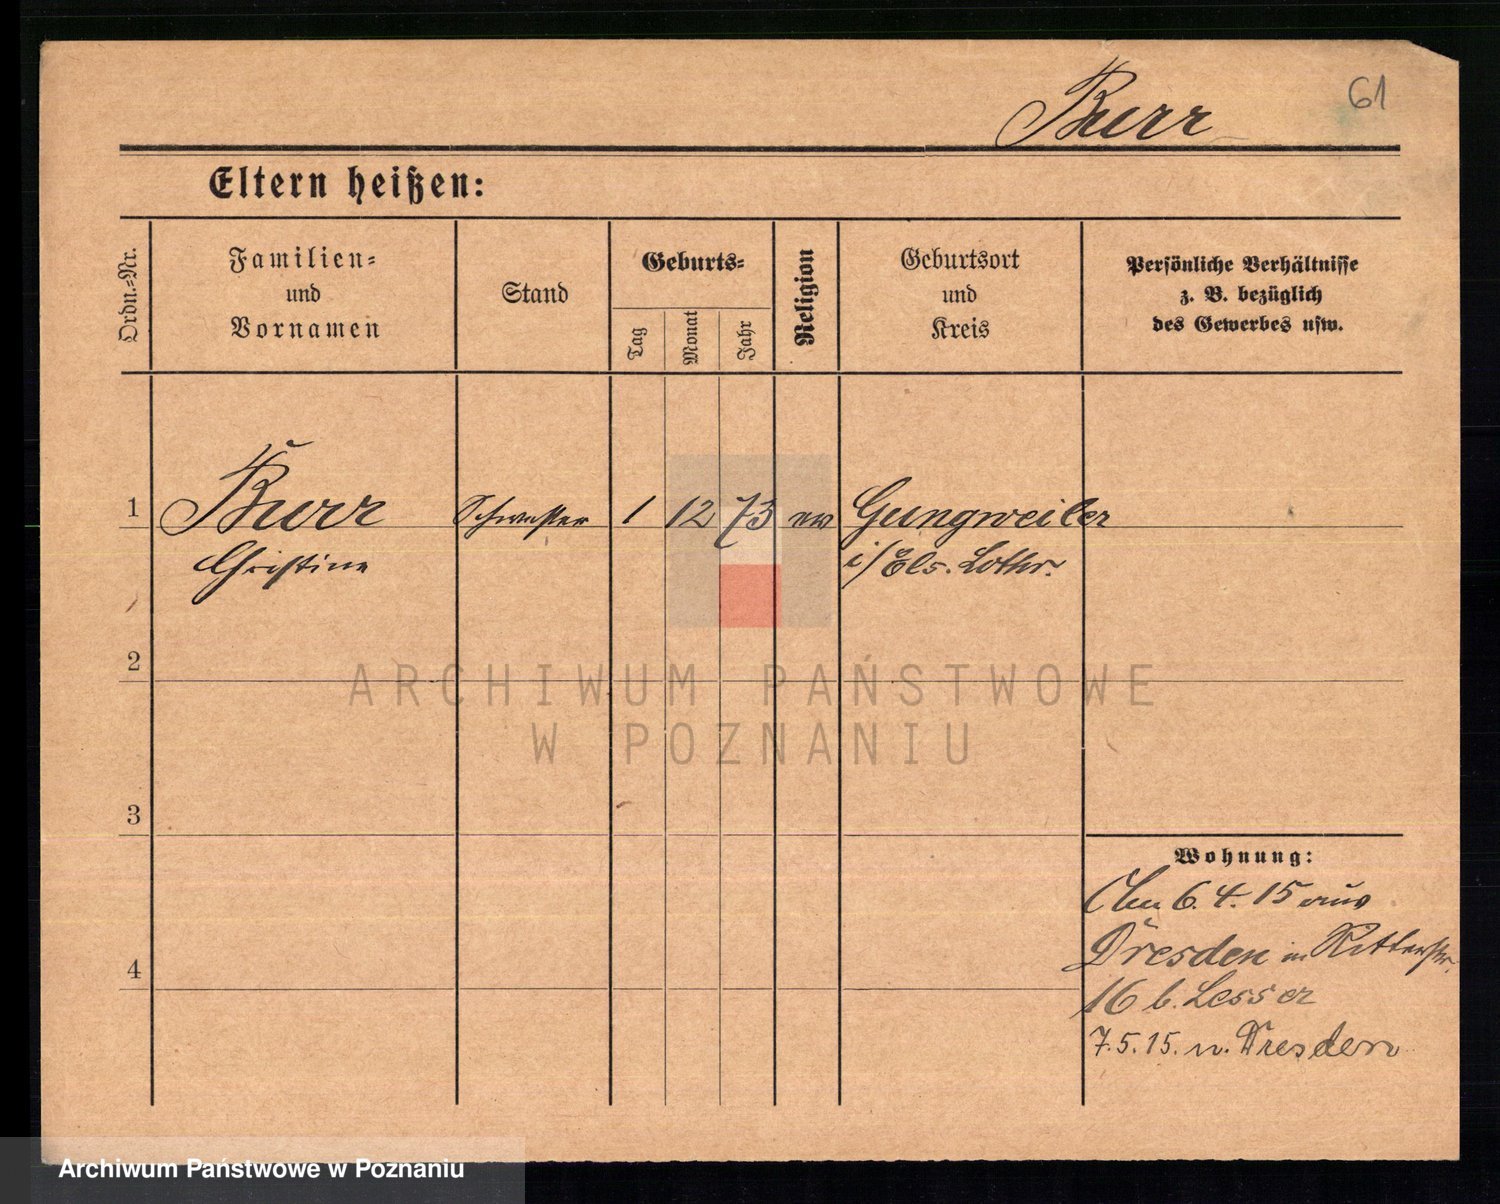 Burr
61
Eltern heißen:
Ordn.-Nr.
Familien-
und
Vornamen
Stand
Geburts-
Tag
Monat
Jahr
Religion
Geburtsort
und
Kreis
Persönliche Verhältnisse
z. B. bezüglich
des Gewerbes usw.
1
Burr
Christine
Schwester
1
12
73
ev
Gungweiler
i/Els. Lothr.
2
ARCHIWUM PAŃSTWOWE
W POZNANIU
3
4
Wohnung:
6. 4. 15 aus
Dresden in Ritterstr.
16 b. Lesser
7. 5. 15. n. Dresden
Archiwum Państwowe w Poznaniu